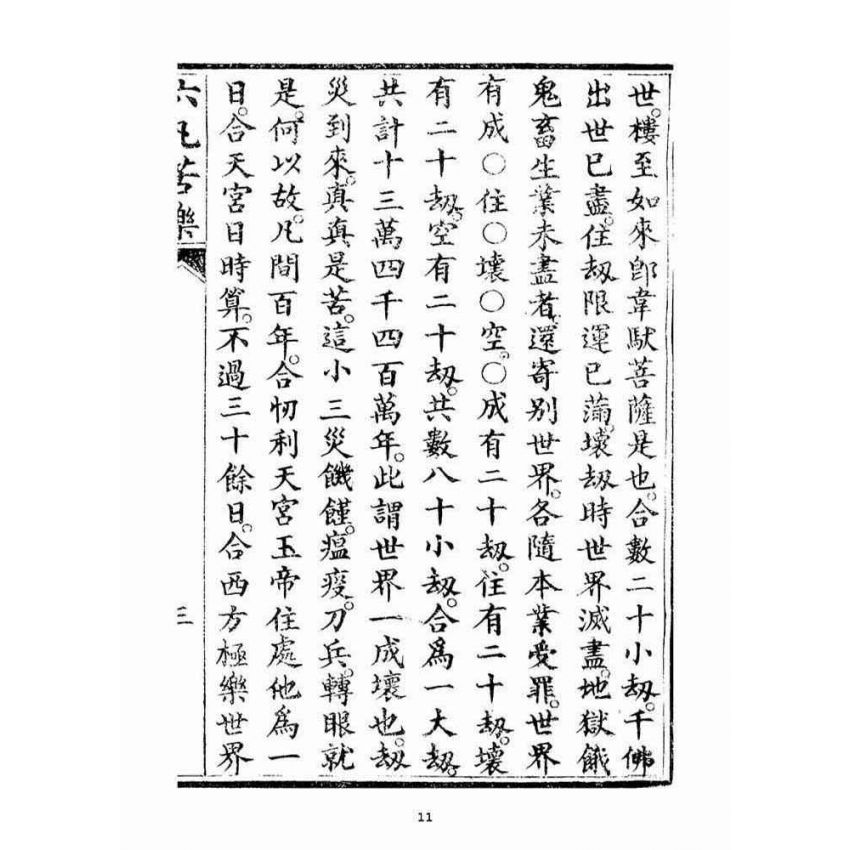 世。樓至如來卽韋馱菩薩是也。合數二十小刼。千佛
出世已盡。住刼限運已滿。壞刼時世界滅盡。地獄餓
鬼畜生業未盡者。還寄别世界。各隨本業受罪。世界
有成○住○壞○空。○成有二十刼。住有二十刼。壞
有二十刼。空有二十刼。共數八十小刼。合爲一大刼。
共計十三萬四千四百萬年。此謂世界一成壞也。刼
災到來。真真是苦。這小三災饑饉。瘟疫。刀兵。轉眼就
是。何以故。凡間百年。合忉利天宮玉帝住處他爲一
日。合天宮日時算。不過三十餘日。合西方極樂世界
六凡苦樂
三
11